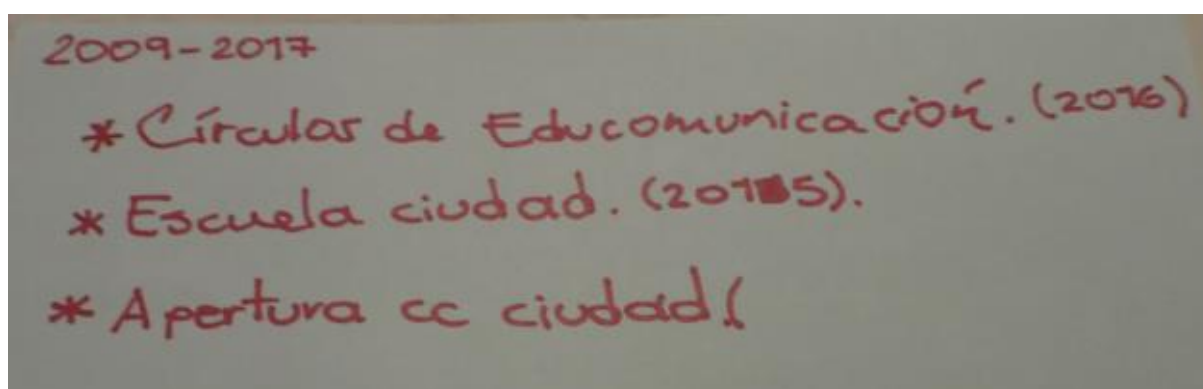 2009-2017
* Círculos de Educomunicación. (2016)
* Escuela ciudad. (2015).
* Apertura cc ciudad (